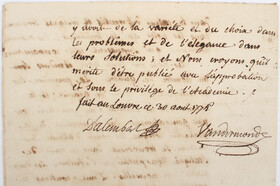 y avoit de la variété et du choix dans
les problèmes et de l'élégance dans
leurs solutions; et Nous croyons qu'il
mérite d'être publié avec l'approbation
et sous le privilège de l'académie.
fait au Louvre ce 20 août
Dalembert
Vandermonde